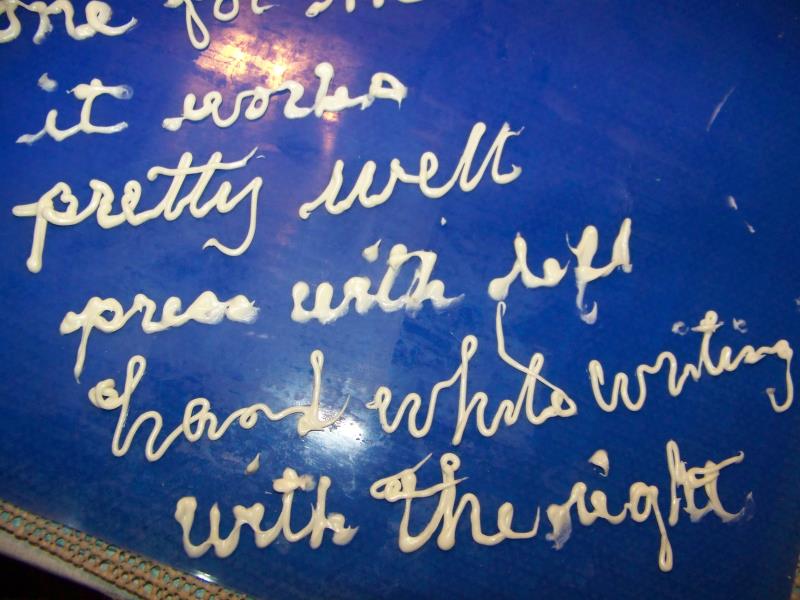 one for me
it works
pretty well
press with left
hand while writing
with the right